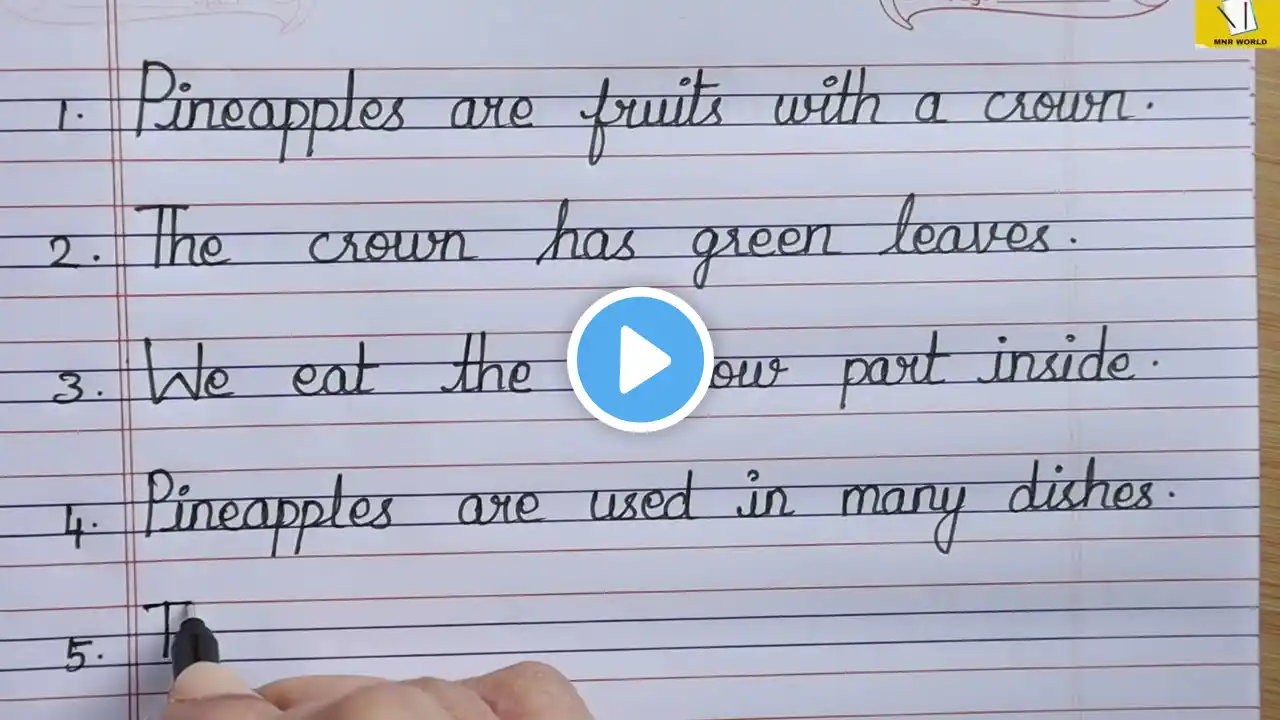 MNR WORLD
1. Pineapples are fruits with a crown.
2. The crown has green leaves.
3. We eat the ow part inside.
4. Pineapples are used in many dishes.
5. T